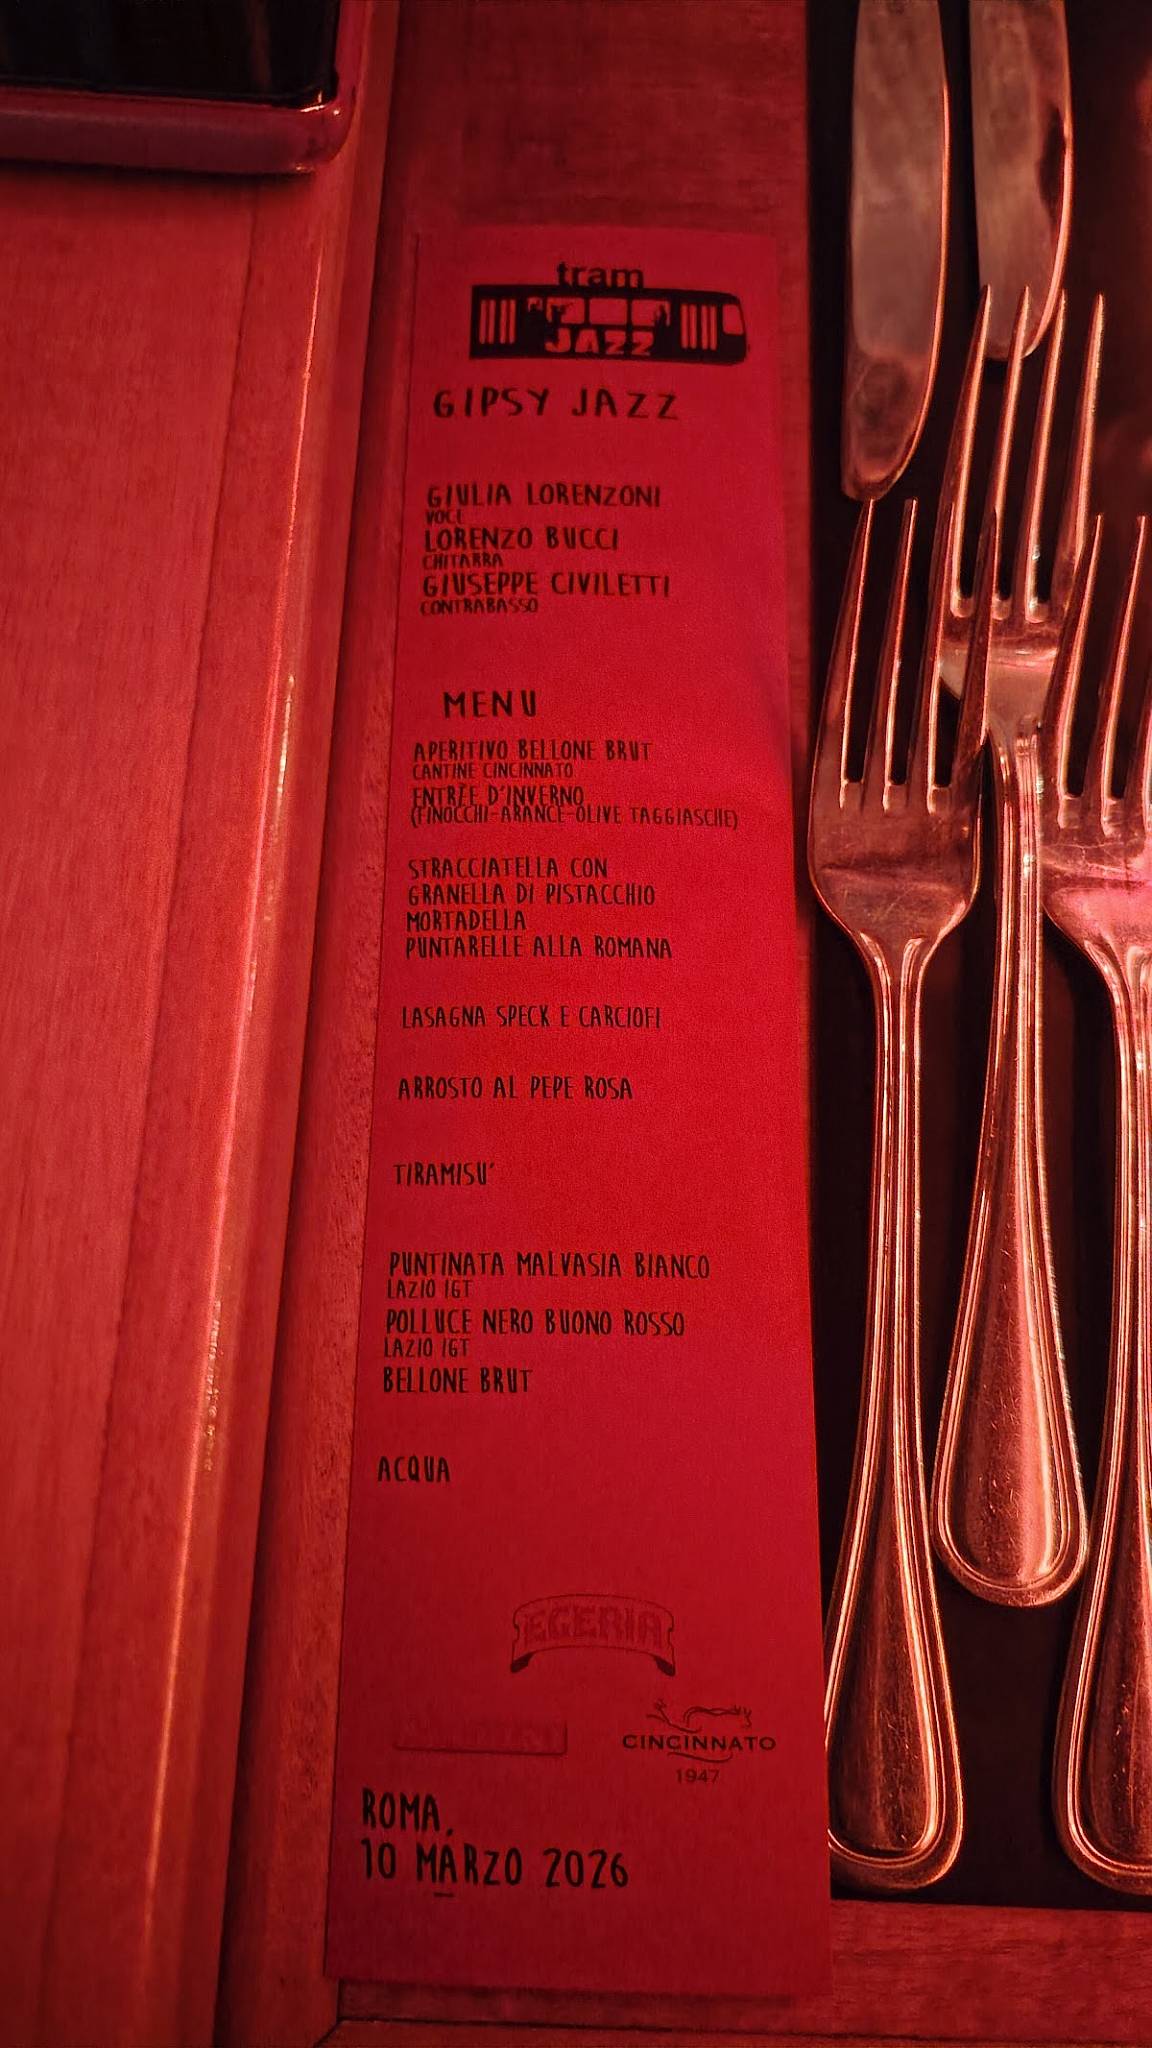 tram
JAZZ
GIPSY JAZZ
GIULIA LORENZONI
VOCE
LORENZO BUCCI
CHITARRA
GIUSEPPE CIVILETTI
CONTRABASSO
MENU
APERITIVO BELLONE BRUT
CANTINE CINCINNATO
ENTRÈE D'INVERNO
(FINOCCHI-ARANCE-OLIVE TAGGIASCHE)
STRACCIATELLA CON
GRANELLA DI PISTACCHIO
MORTADELLA
PUNTARELLE ALLA ROMANA
LASAGNA SPECK E CARCIOFI
ARROSTO AL PEPE ROSA
TIRAMISU'
PUNTINATA MALVASIA BIANCO
LAZIO IGT
POLLUCE NERO BUONO ROSSO
LAZIO IGT
BELLONE BRUT
ACQUA
EGERIA
CINCINNATO
1947
ROMA,
10 MARZO 2026